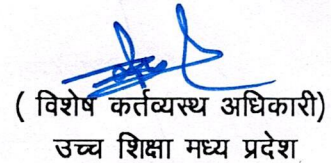 ( विशेष कर्तव्यस्थ अधिकारी)
उच्च शिक्षा मध्य प्रदेश